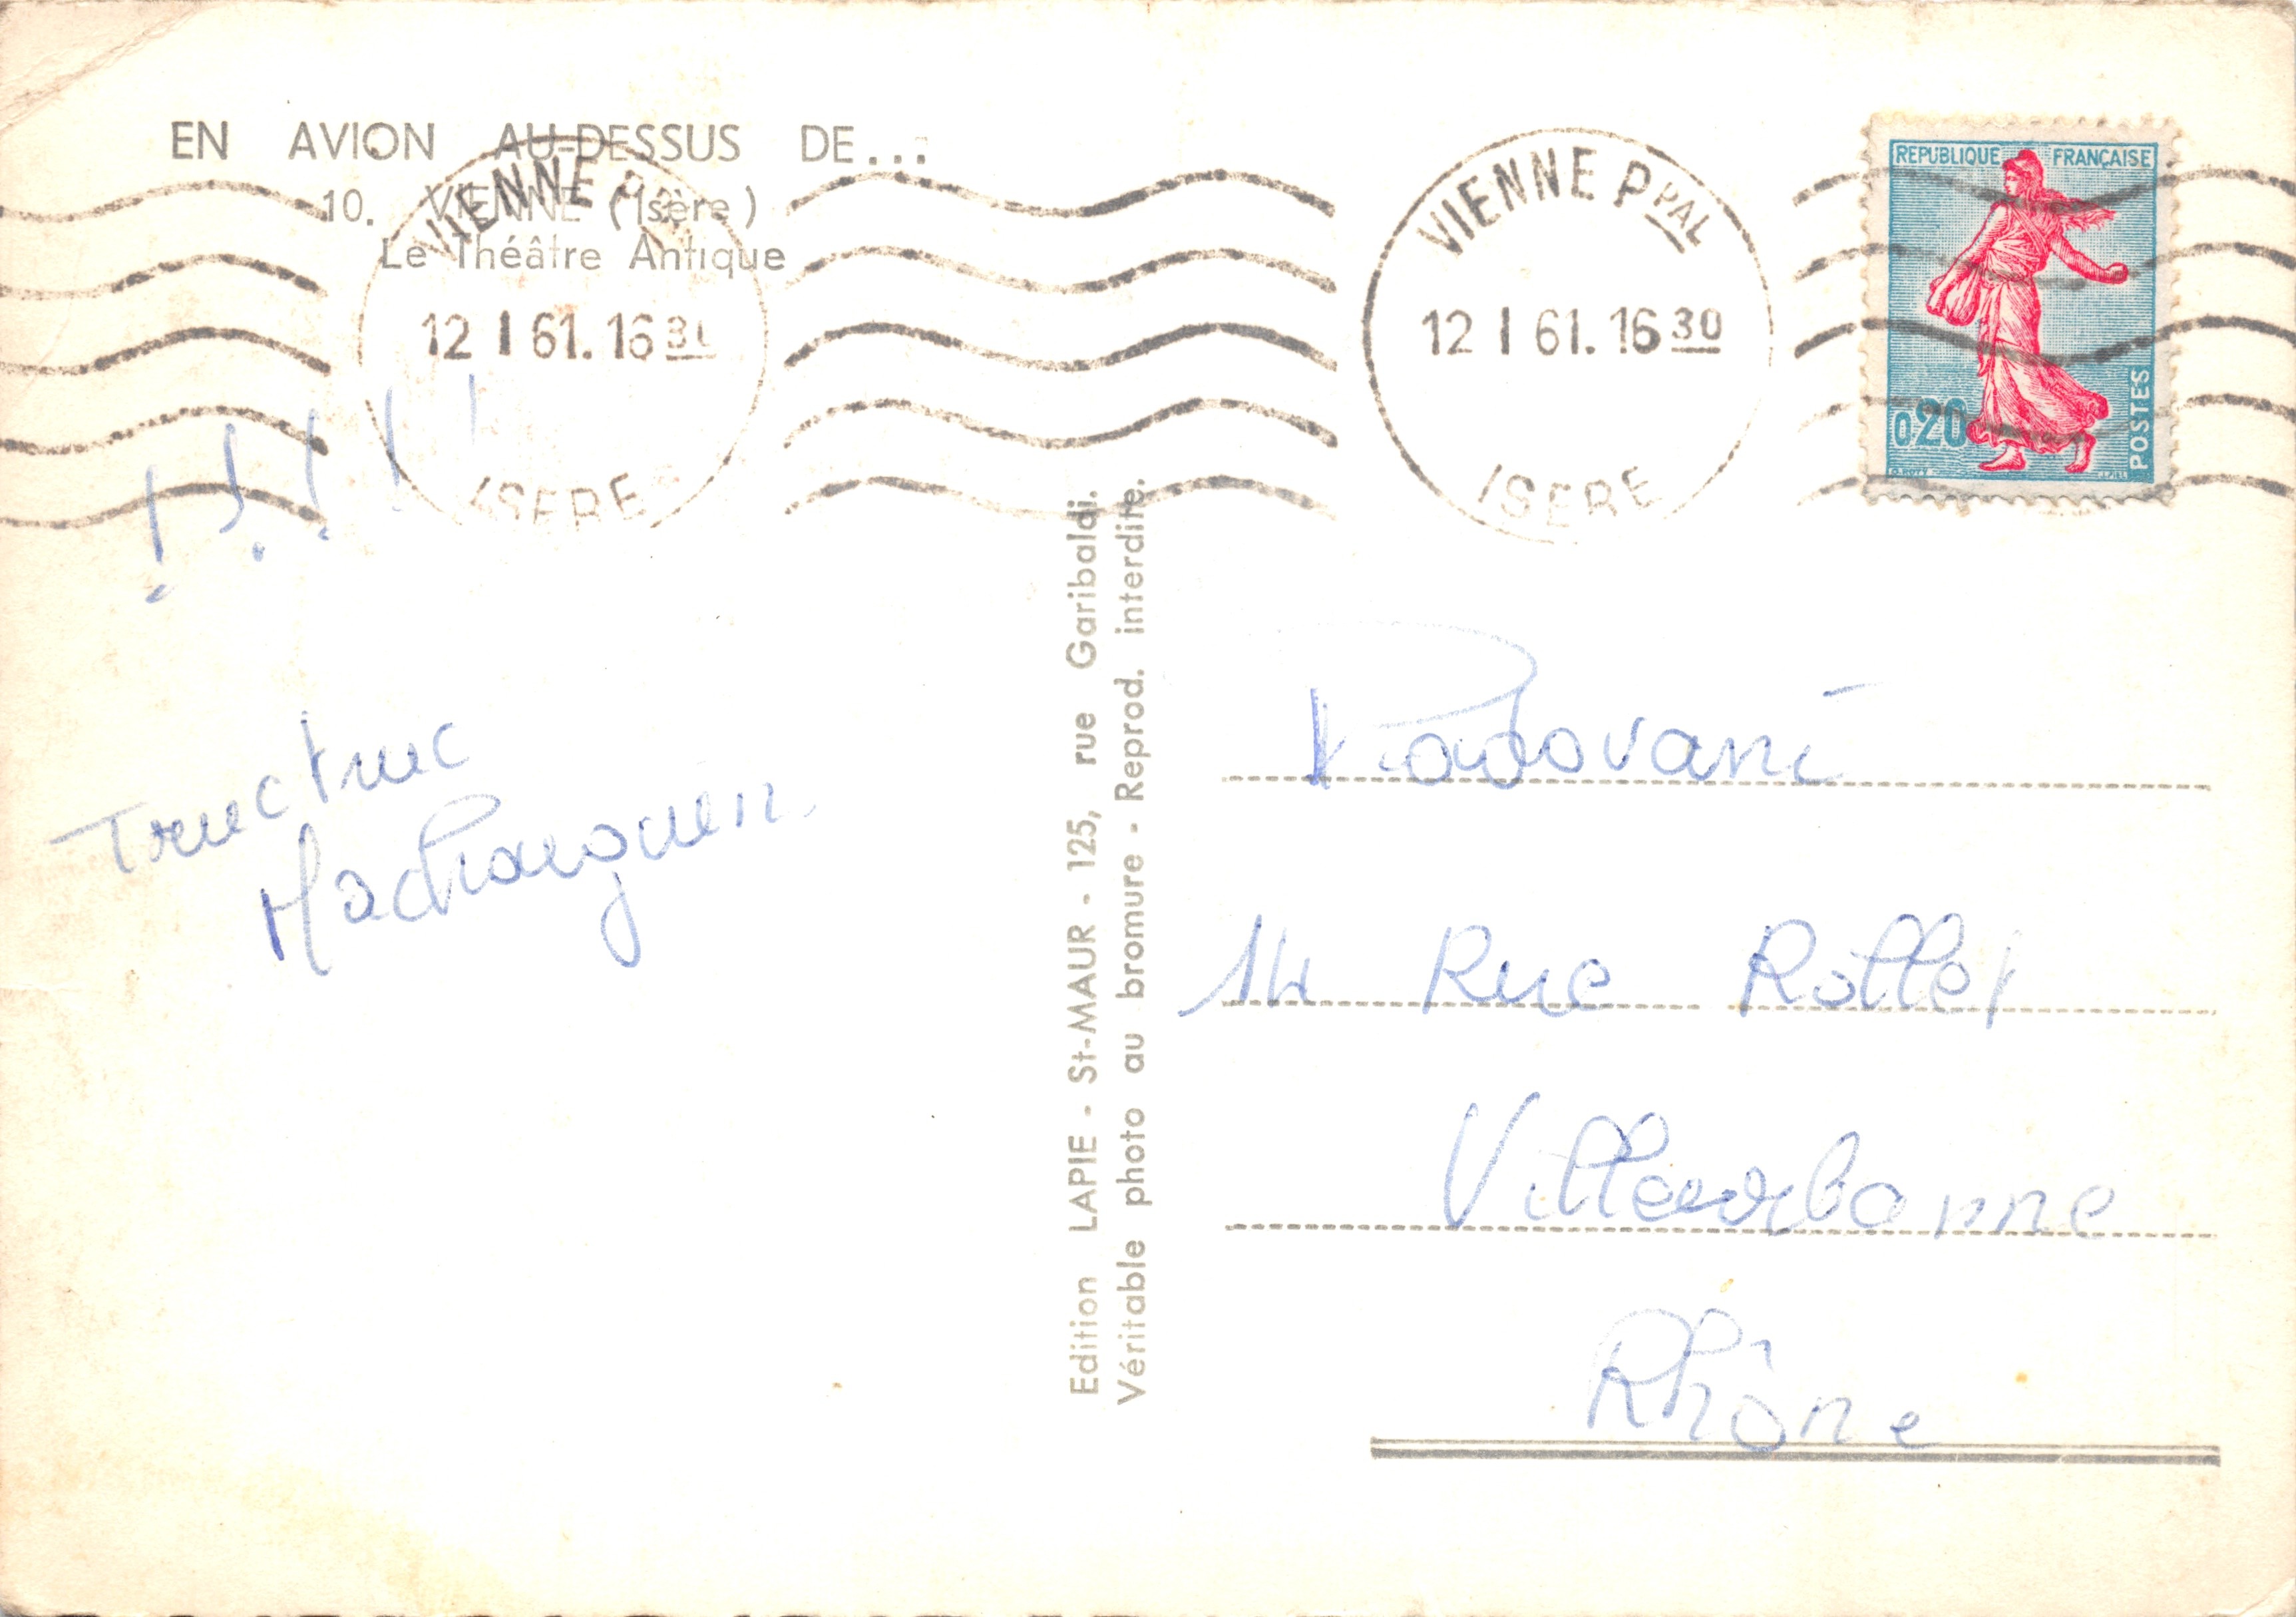 EN AVION AU-DESSUS DE...
10. VIENNE (Isère)
Le Théâtre Antique
VIENNE PPAL
12 I 61. 16 30
ISERE
VIENNE PPAL
12 I 61. 16 30
ISERE
REPUBLIQUE FRANÇAISE
0,20
POSTES
! ! ! ! !
Tructruc
Edition LAPIE - St-MAUR - 125, rue Garibaldi.
Véritable photo au bromure - Reprod. interdite.
Padovani
14 Rue Rollet
Villeurbanne
Rhône